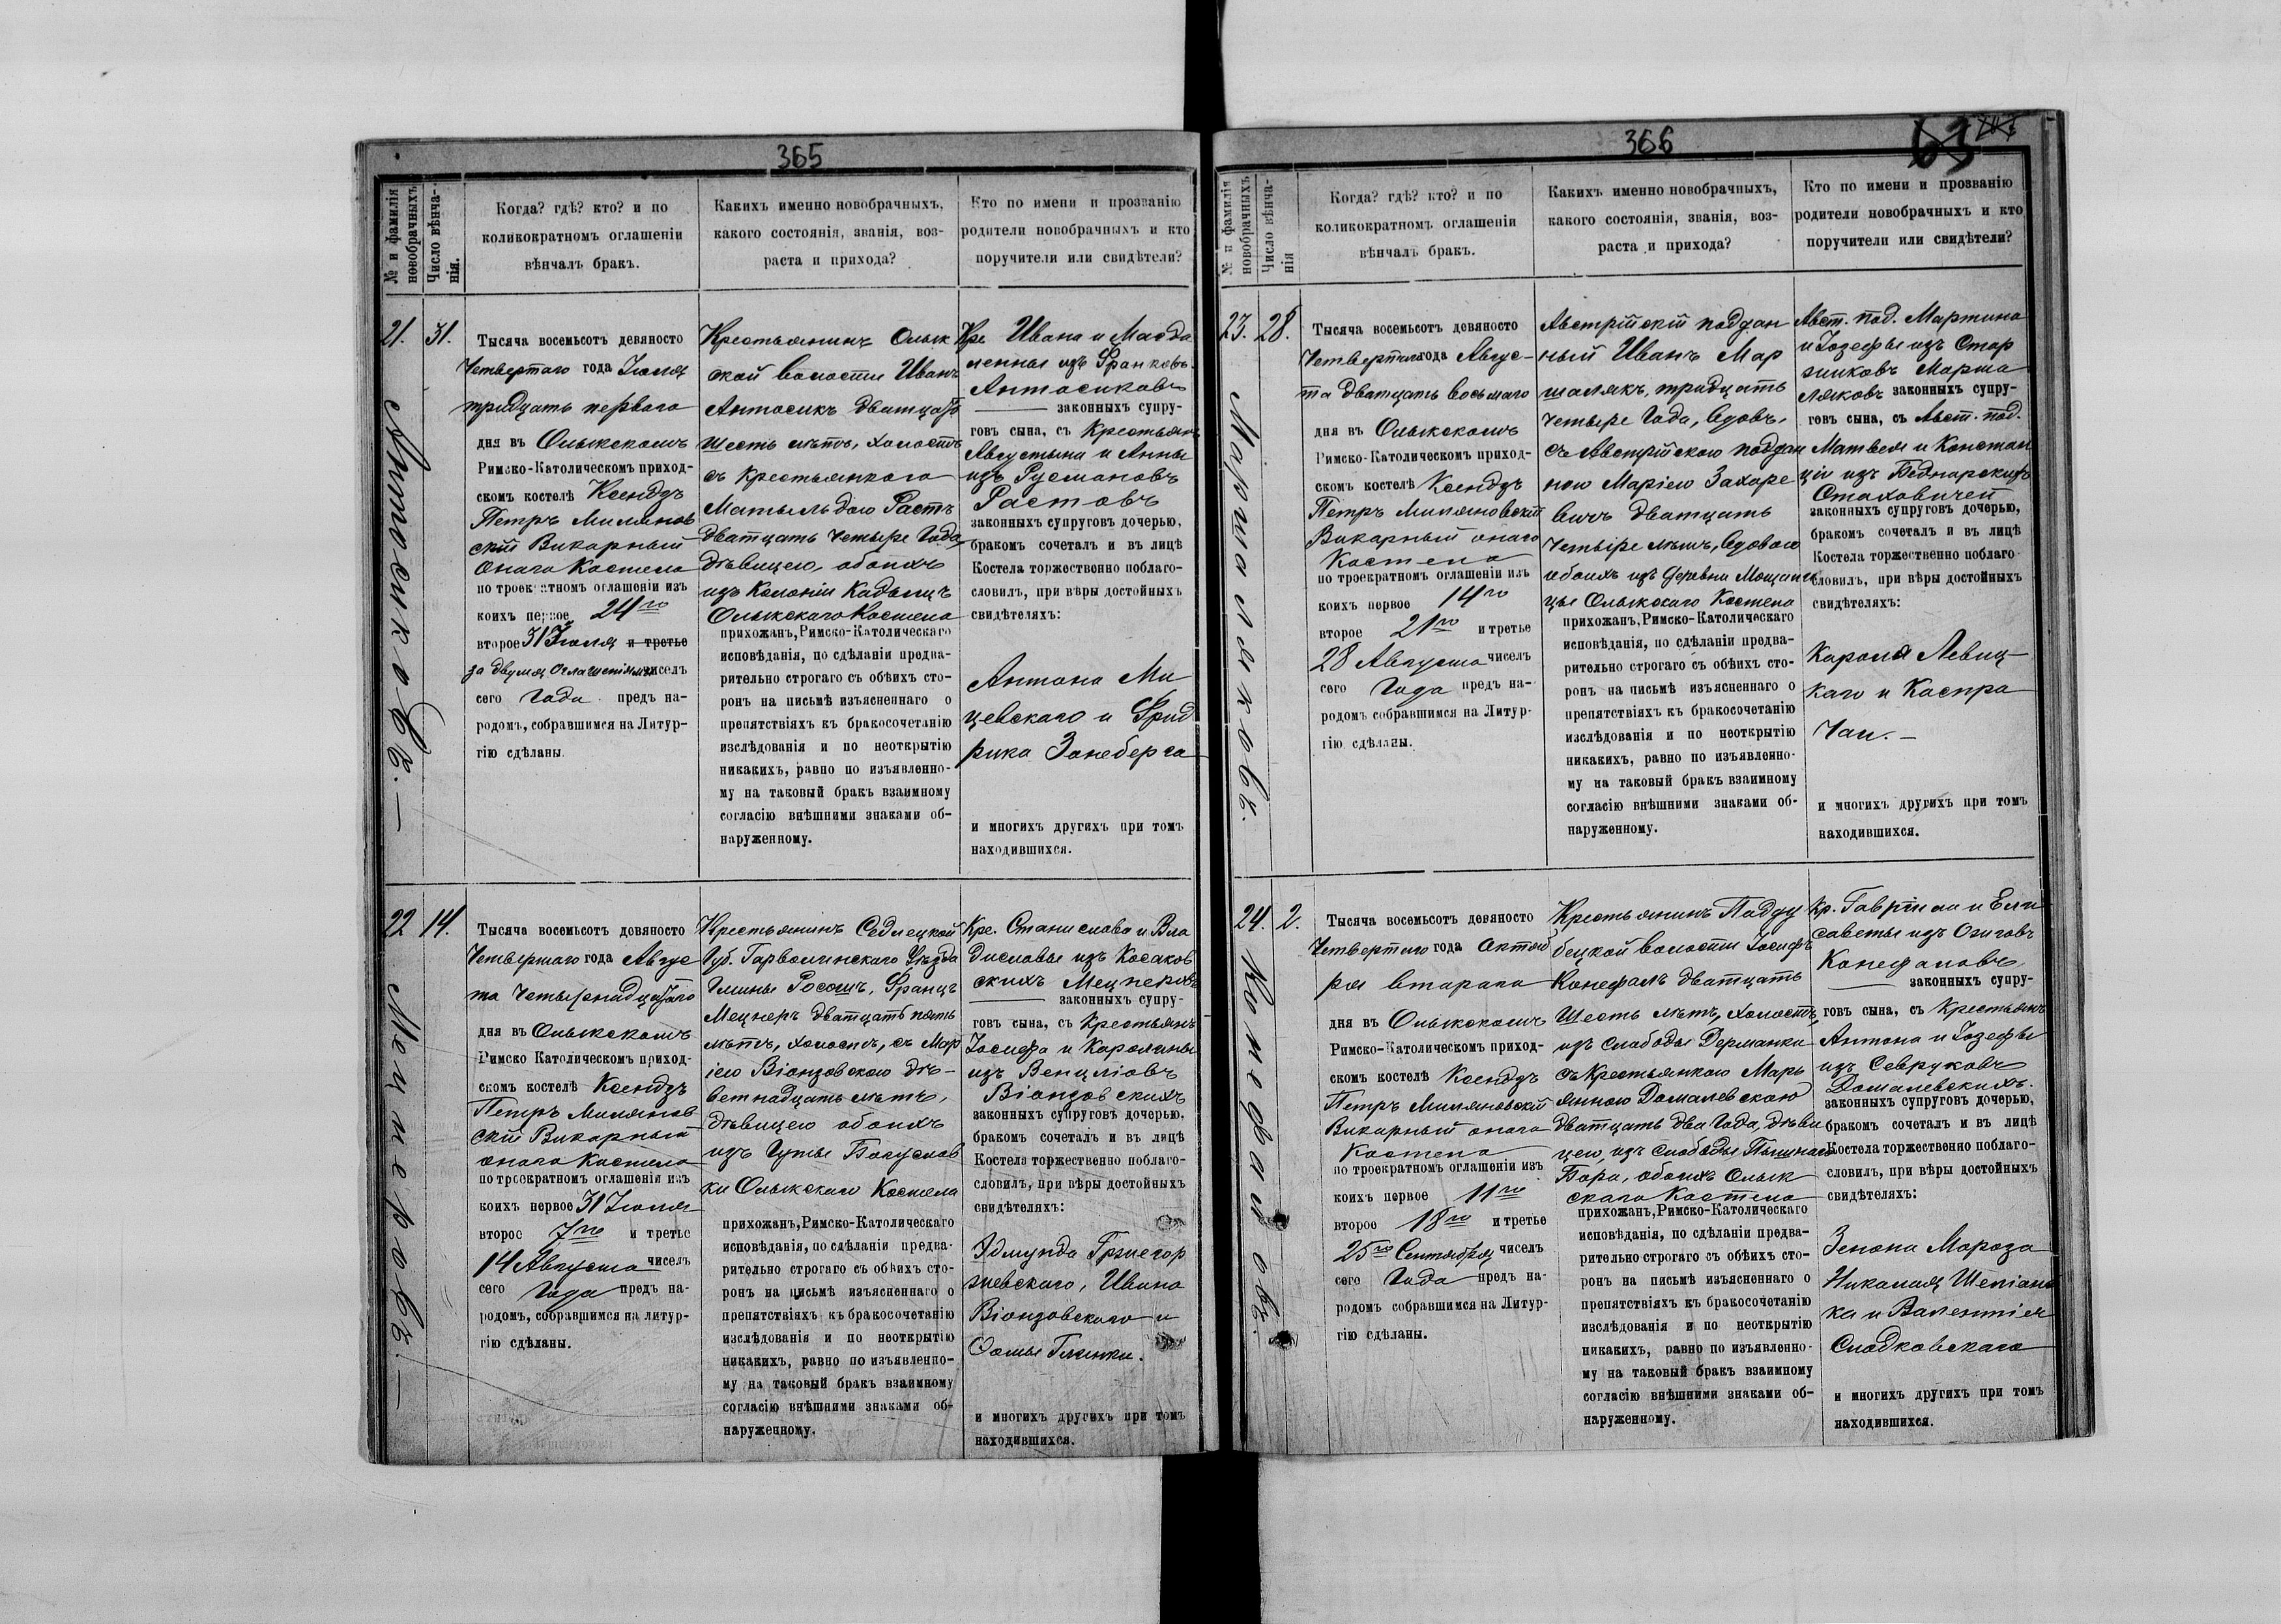 365
№ и фамилія
новобрачныхъ
Число вѣнча-
нія.
Когда? гдѣ? кто? и по
коликократномъ оглашеніи
вѣнчалъ бракъ.
Какихъ именно новобрачныхъ,
какого состоянія, званія, воз-
раста и прихода?
Кто по имени и прозванію
родители новобрачныхъ и кто
поручители или свидѣтели?
21.
Антосиковъ. —
31.
Тысяча восемьсотъ девяносто
Четвертаго года Іюля
тридцать перваго
дня въ Олыкскомъ
Римско-Католическомъ приход-
скомъ костелѣ Ксендзъ
Петръ Милянов
скій Викарный
онаго Костела
по троекратномъ оглашеніи изъ
коихъ первое 24го
второе 31 Іюля и третье
за двумя оглашеніями чиселъ
сего Года предъ на-
родомъ, собравшимся на Литур-
гію сдѣланы.
Крестьянинъ Олык
ской волости Иванъ
Антосикъ двадцать
шесть лѣтъ, холостъ
съ крестьянкою
Матыльдою Растъ
дватцать четыре Года
дѣвицею, обоихъ
изъ Колоніи Кадыщъ
Олыкскаго Костела
прихожанъ, Римско-Католическаго
исповѣданія, по сдѣланіи предва-
рительно строгаго съ обѣихъ сто-
ронъ на письмѣ изъясненнаго о
препятствіяхъ къ бракосочетанію
изслѣдованія и по неоткрытію
никакихъ, равно по изъявленно-
му на таковый бракъ взаимному
согласію внѣшними знаками об-
наруженному.
Кре. Ивана и Магда
лены изъ Франковъ
Антосиковъ
законныхъ супру-
говъ сына, съ Крестьянъ
Августына и Анны
изъ Русмановъ
Растовъ
законныхъ супруговъ дочерью,
бракомъ сочеталъ и въ лицѣ
Костела торжественно поблаго-
словилъ, при вѣры достойныхъ
свидѣтеляхъ:
Антона Ми
цевскаго и Фрид
рика Занеберга
и многихъ другихъ при томъ
находившихся.
22
Мецнеровъ. —
14.
Тысяча восемьсотъ девяносто
Четвертаго года Авгус
та Четырнадцатаго
дня въ Олыкскомъ
Римско Католическомъ приход-
скомъ костелѣ Ксендзъ
Петръ Милянов
скій Викарный
онаго Костела
по троекратномъ оглашеніи изъ
коихъ первое 31 Іюля
второе 7го и третье
14 Августа чиселъ
сего Года предъ на-
родомъ, собравшимся на литур-
гію сдѣланы.
Крестьянинъ Седлецкой
Губ. Гарволинскаго Уѣзда
Гмины Россошъ, Францъ
Мецнеръ двадцать пять
лѣтъ, холостъ, съ Мар
іею Віонзовскою дѣ-
ветнадцать лѣтъ,
дѣвицею обоихъ
изъ Гуты Богуслав
ки Олыкскаго Костела
прихожанъ, Римско-Католическаго
исповѣданія, по сдѣланіи предва-
рительно строгаго съ обѣихъ сто-
ронъ на письмѣ изъясненнаго о
препятствіяхъ къ бракосочетанію
изслѣдованія и по неоткрытію
никакихъ, равно по изъявленно-
му на таковый бракъ взаимному
согласію внѣшними знаками об-
наруженному.
Кре. Станислава и Вла
диславы изъ Косаков
скихъ Мецнеровъ
законныхъ супру-
говъ сына, съ Крестьянъ
Іосифа и Каролины
изъ Венцліовъ
Віонзовскихъ
законныхъ супруговъ дочерью,
бракомъ сочеталъ и въ лицѣ
Костела торжественно поблаго-
словилъ, при вѣры достойныхъ
свидѣтеляхъ:
Эдмунда Гржегор
жевскаго, Ивана
Віонзовскаго и
Фомы Глинки.
и многихъ другихъ при томъ
находившихся.
366
63
№ и фамилія
новобрачныхъ
Число вѣнча-
нія
Когда? гдѣ? кто? и по
коликократномъ оглашеніи
вѣнчалъ бракъ.
Какихъ именно новобрачныхъ,
какого состоянія, званія, воз-
раста и прихода?
Кто по имени и прозванію
родители новобрачныхъ и кто
поручители или свидѣтели?
23.
Маршаляковъ.
28.
Тысяча восемьсотъ девяносто
Четвертаго года Авгус-
та двадцать восьмаго
дня въ Олыкскомъ
Римско-Католическомъ приход-
скомъ костелѣ Ксендзъ
Петръ Миляновскій
Викарный онаго
Костела
по троекратномъ оглашеніи изъ
коихъ первое 14го
второе 21го и третье
28 Августа чиселъ
сего Года предъ на-
родомъ собравшимся на Литур-
гію сдѣланы.
Австрійскій поддан
ный Иванъ Мар
шалякъ, тридцать
четыре Года, вдовъ,
съ Австрійскою поддан
ною Маріею Захаре
вичъ двадцать
четыре лѣтъ, вдовою
обоихъ изъ деревни Мощани
цы Олыкскаго Костела
прихожанъ, Римско-Католическаго
исповѣданія, по сдѣланіи предва-
рительно строгаго съ обѣихъ сто-
ронъ на письмѣ изъясненнаго о
препятствіяхъ къ бракосочетанію
изслѣдованія и по неоткрытію
никакихъ, равно по изъявленно-
му на таковый бракъ взаимному
согласію внѣшними знаками об-
наруженному.
Авст. под. Мартина
и Іозефы изъ Стар
зиковъ Марша
ляковъ законныхъ супру-
говъ сына, съ Авст. под.
Матвея и Констан
ціи изъ Беднарскихъ
Стаховичей
законныхъ супруговъ дочерью,
бракомъ сочеталъ и въ лицѣ
Костела торжественно поблаго
словилъ, при вѣры достойныхъ
свидѣтеляхъ:
Кароля Левиц-
каго и Каспра
Чап. —
и многихъ другихъ при томъ
находившихся.
24.
Конефаловъ.
2.
Тысяча восемьсотъ девяносто
Четвертаго года Октяб
ря втораго
дня въ Олыкскомъ
Римско-Католическомъ приход-
скомъ костелѣ Ксендзъ
Петръ Миляновскій
Викарный онаго
Костела
по троекратномъ оглашеніи изъ
коихъ первое 11го
второе 18го и третье
25го Сентября чиселъ
сего Года предъ на-
родомъ собравшимся на Литур-
гію сдѣланы.
Крестьянинъ Подду
бецкой волости Іосифъ
Конефалъ двадцать
шесть лѣтъ, холостъ,
изъ слободы Дерманки
съ Крестьянкою Марь
янною Домалевскою
двадцать два Года, дѣви
цею, изъ слободы
Бора, обоихъ Олык
скаго Костела
прихожанъ, Римско-Католическаго
исповѣданія, по сдѣланіи предва-
рительно строгаго съ обѣихъ сто-
ронъ на письмѣ изъясненнаго о
препятствіяхъ къ бракосочетанію
изслѣдованія и по неоткрытію
никакихъ, равно по изъявленно-
му на таковый бракъ взаимному
согласію внѣшними знаками об-
наруженному.
Кр. Гавріила и Ели
саветы изъ Озиговъ
Конефаловъ
законныхъ супру-
говъ сына, съ Крестьянъ
Антона и Іозефы
изъ Севруковъ
Домалевскихъ.
законныхъ супруговъ дочерью,
бракомъ сочеталъ и въ лицѣ
Костела торжественно поблаго-
словилъ, при вѣры достойныхъ
свидѣтеляхъ:
Зенона Мароза
Николая
ка и Валентія
Сладковскаго
и многихъ другихъ при томъ
находившихся.